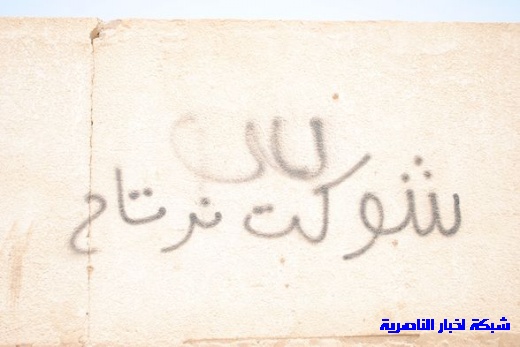 شوكت نرتاح
شبكة اخبار الناصرية